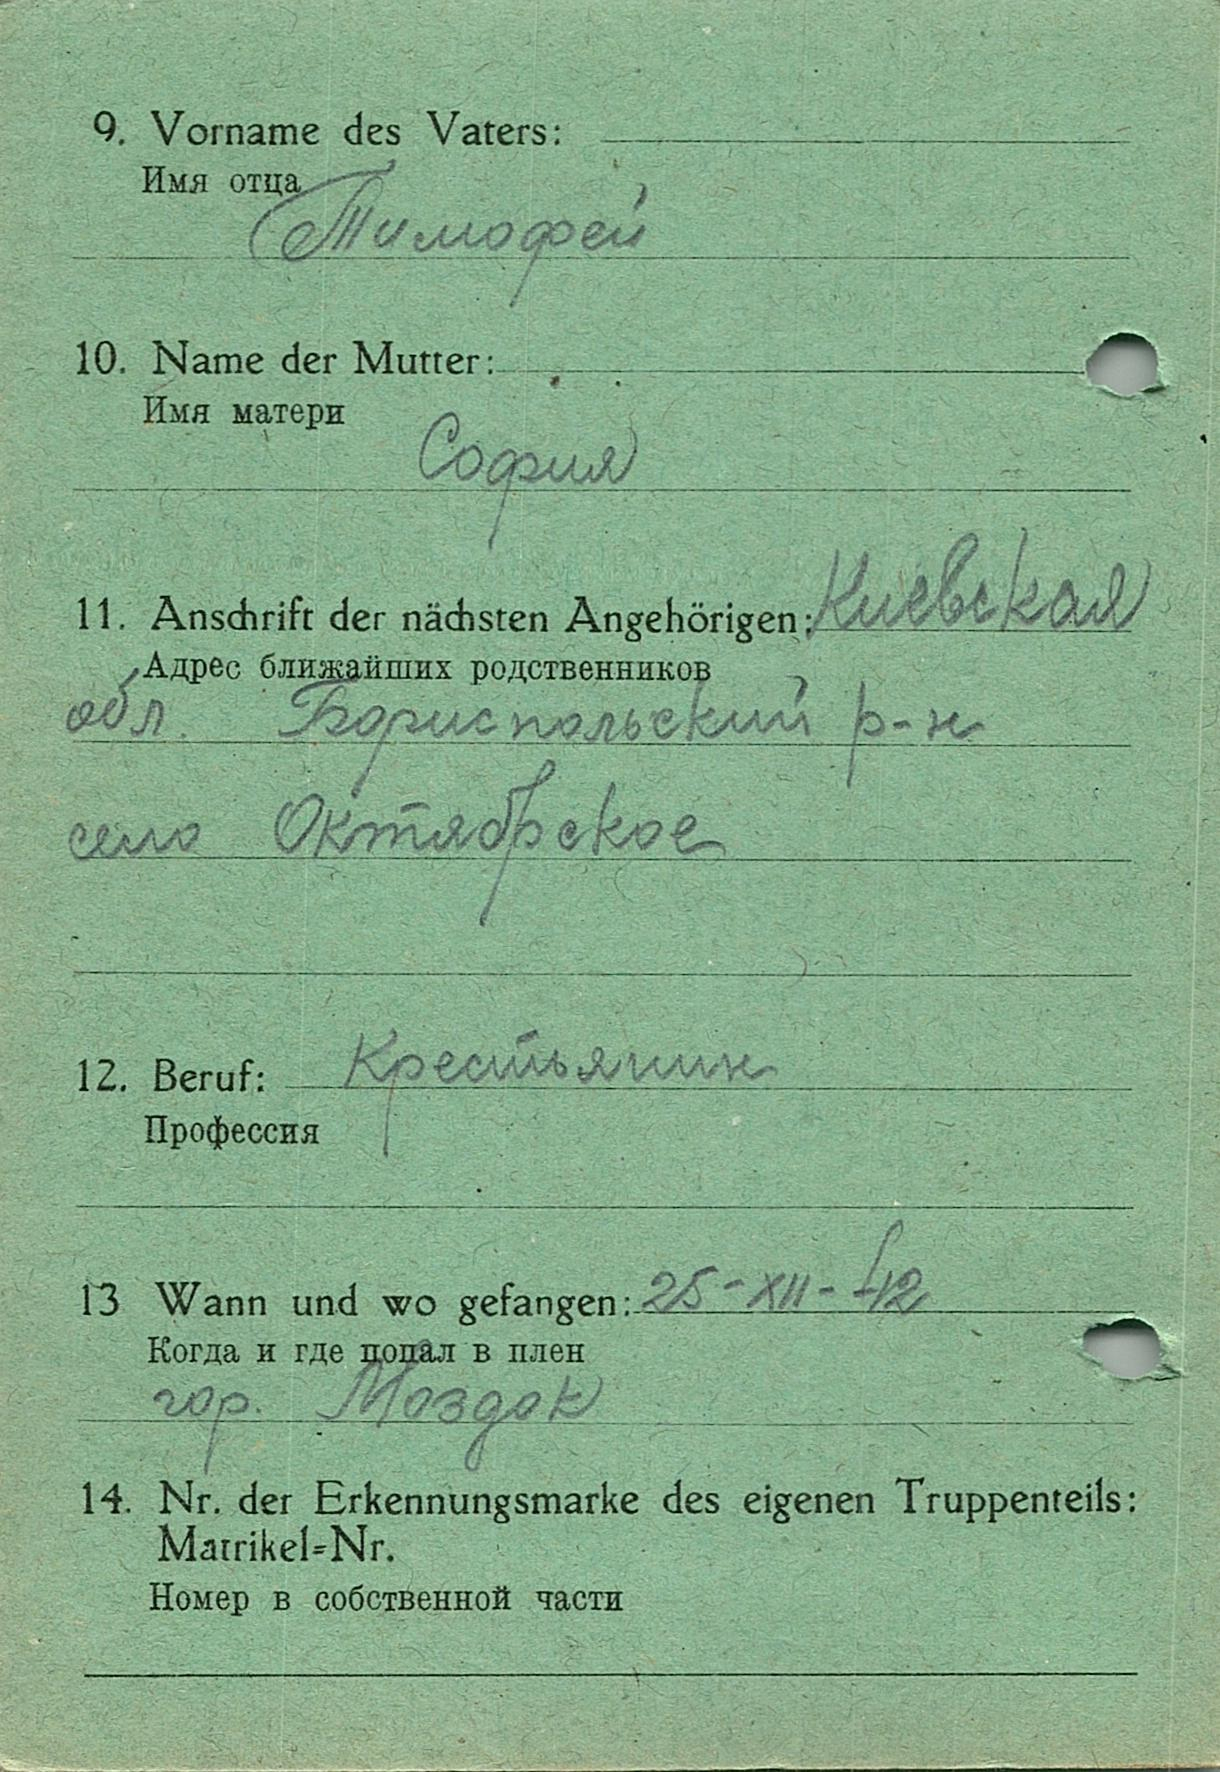 9. Vorname des Vaters:
Имя отца
Тимофей
10. Name der Mutter:
Имя матери
София
11. Anschrift der nächsten Angehörigen: Киевская
Адрес ближайших родственников
обл. Бориспольский р-н
село Октябрское
12. Beruf: Крестьянин
Профессия
13 Wann und wo gefangen: 25-XII-42
Когда и где попал в плен
гор. Моздок
14. Nr. der Erkennungsmarke des eigenen Truppenteils:
Matrikel=Nr.
Номер в собственной части